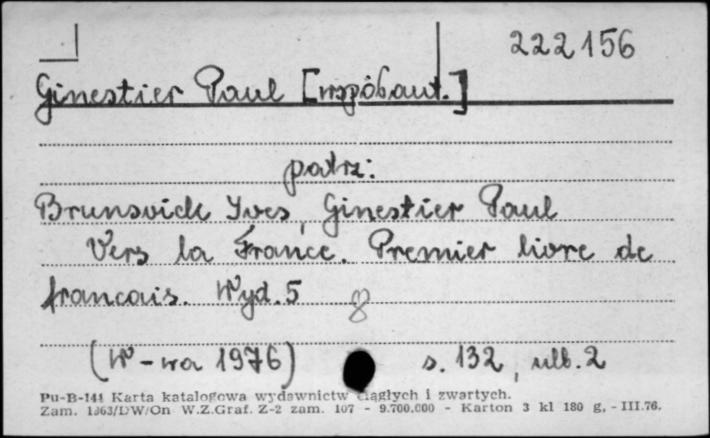 222156
Ginestier Paul [współaut.]
patrz:
Brunsvick Yves, Ginestier Paul
Vers la France. Premier livre de
francais. Wyd. 5
8
(W-wa 1976) s. 132, ulb. 2
Pu-B-144 Karta katalogowa wydawnictw ciągłych i zwartych.
Zam. 1363/DW/On W.Z.Graf. Z-2 zam. 107 - 9.700.000 - Karton 3 kl 180 g. - III.76.